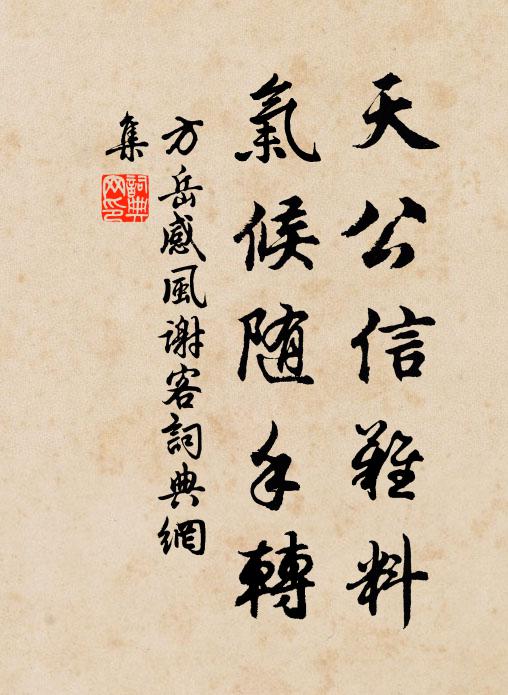 天公信難料
氣候随手轉
方岳感風謝客詞典網
集
詞典
网印